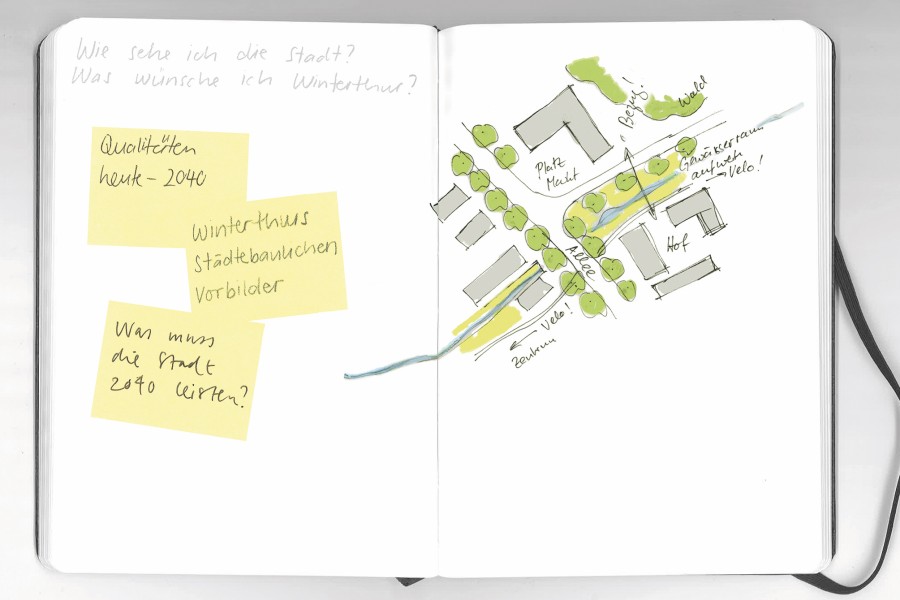 Wie sehe ich die Stadt?
Was wünsche ich Winterthur?
Qualitäten
heute – 2040
Winterthurs
städtebaulichen
Vorbilder
Was muss
die Stadt
2040 leisten?
Bezug!
Wald
Platz
Markt
Gewässerraum
aufweh
Velo!
Hof
Allee
Velo!
Zentrum